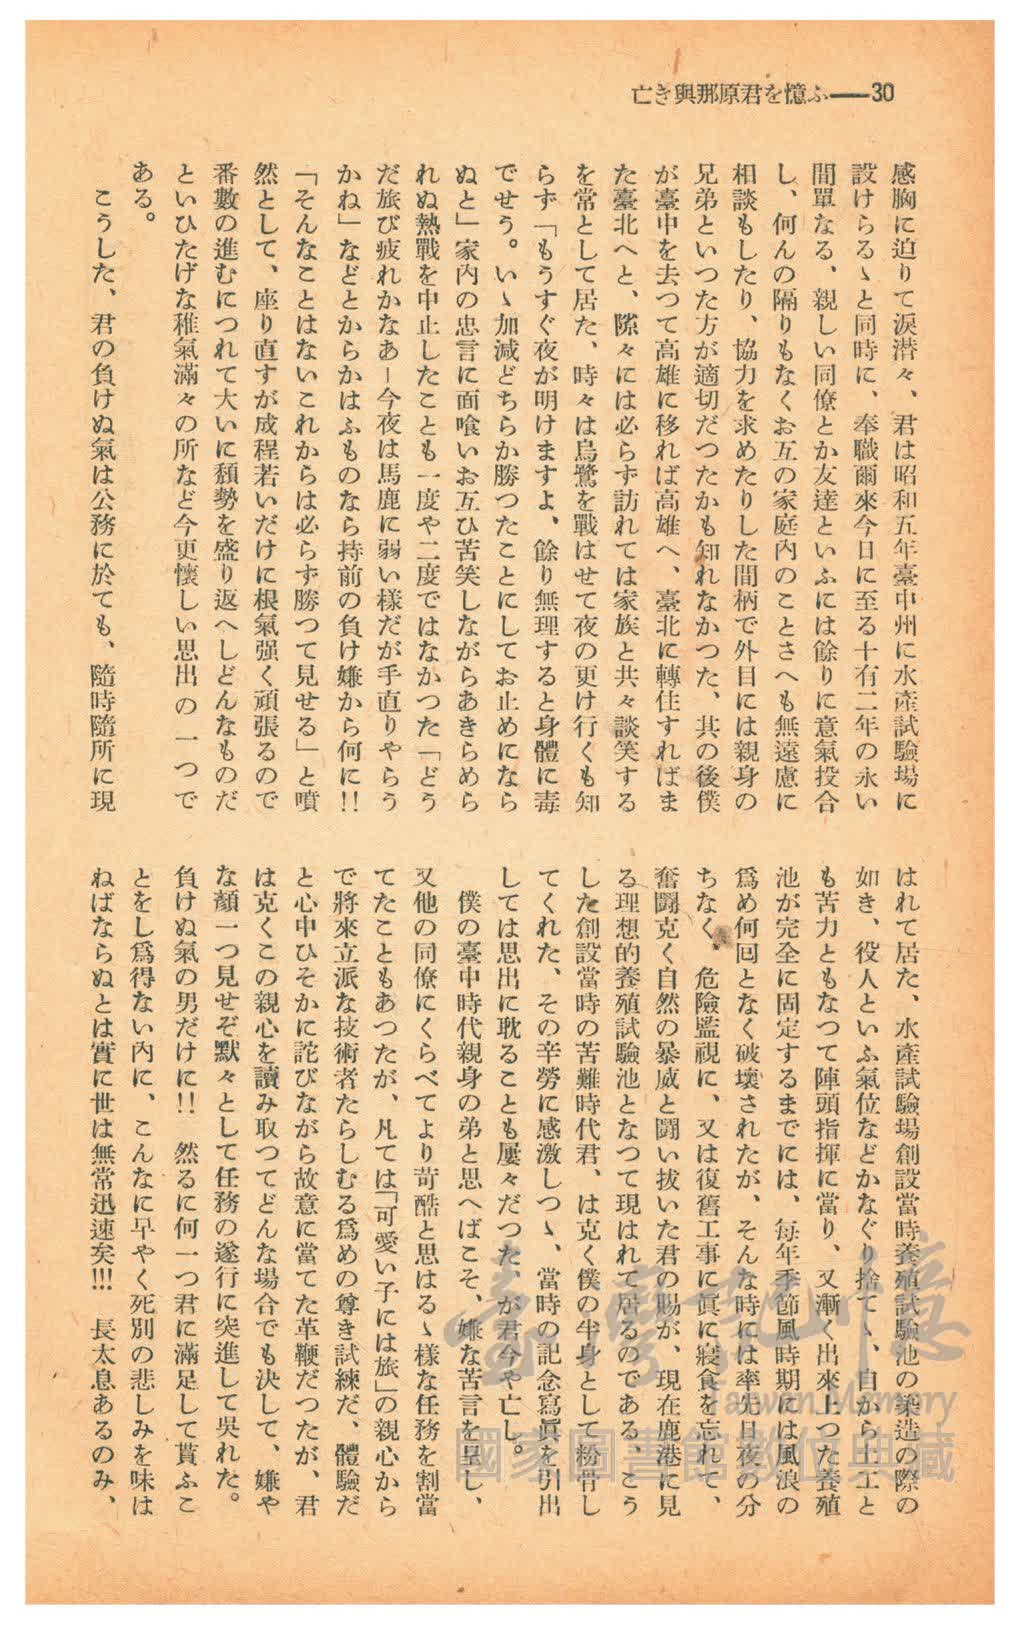 亡き與那原君を憶ふ——30
感胸に迫りて淚潸々、君は昭和五年臺中州に水產試驗場に
設けらるゝと同時に、奉職爾來今日に至る十有二年の永い
間單なる、親しい同僚とか友達といふには餘りに意氣投合
し、何んの隔りもなくお互の家庭內のことさへも無遠慮に
相談もしたり、協力を求めたりした間柄で外目には親身の
兄弟といつた方が適切だつたかも知れなかつた、其の後僕
が臺中を去つて高雄に移れば高雄へ、臺北に轉住すればま
た臺北へと、隙々には必らず訪れては家族と共々談笑する
を常として居た、時々は烏鷺を戰はせて夜の更け行くも知
らず「もうすぐ夜が明けますよ、餘り無理すると身體に毒
でせう。いゝ加減どちらか勝つたことにしてお止めになら
ぬと」家內の忠言に面喰いお互ひ苦笑しながらあきらめら
れぬ熱戰を中止したことも一度や二度ではなかつた「どう
だ旅び疲れかなあー今夜は馬鹿に弱い樣だが手直りやらう
かね」などとからかはふものなら持前の負け嫌から何に!!
「そんなことはないこれからは必らず勝つて見せる」と噴
然として、座り直すが成程若いだけに根氣强く頑張るので
番數の進むにつれて大いに頽勢を盛り返へしどんなものだ
といひたげな稚氣滿々の所など今更懷しい思出の一つで
ある。
こうした、君の負けぬ氣は公務に於ても、隨時隨所に現
はれて居た、水產試驗場創設當時養殖試驗池の築造の際の
如き、役人といふ氣位などかなぐり捨てゝ、自から土工と
も苦力ともなつて陣頭指揮に當り、又漸く出來上つた養殖
池が完全に固定するまでには、每年季節風時期には風浪の
爲め何囘となく破壞されたが、そんな時には率先日夜の分
ちなく、危險監視に、又は復舊工事に眞に寢食を忘れて、
奮鬪克く自然の暴威と鬪い拔いた君の賜が、現在鹿港に見
る理想的養殖試驗池となつて現はれて居るのである、こう
した創設當時の苦難時代君、は克く僕の半身として粉骨し
てくれた、その辛勞に感激しつゝ、當時の記念寫眞を引出
しては思出に耽ることも屢々だつた、が君今や亡し。
僕の臺中時代親身の弟と思へばこそ、嫌な苦言を呈し、
又他の同僚にくらべてより苛酷と思はるゝ樣な任務を割當
てたこともあつたが、凡ては「可愛い子には旅」の親心から
で將來立派な技術者たらしむる爲めの尊き試練だ、體驗だ
と心中ひそかに詫びながら故意に當てた革鞭だつたが、君
は克くこの親心を讀み取つてどんな場合でも決して、嫌や
な顏一つ見せぞ默々として任務の遂行に突進して吳れた。
負けぬ氣の男だけに!!　然るに何一つ君に滿足して貰ふこ
とをし爲得ない內に、こんなに早やく死別の悲しみを味は
ねばならぬとは實に世は無常迅速矣!!!　長太息あるのみ、
臺灣記憶
Taiwan Memory
國家圖書館數位典藏